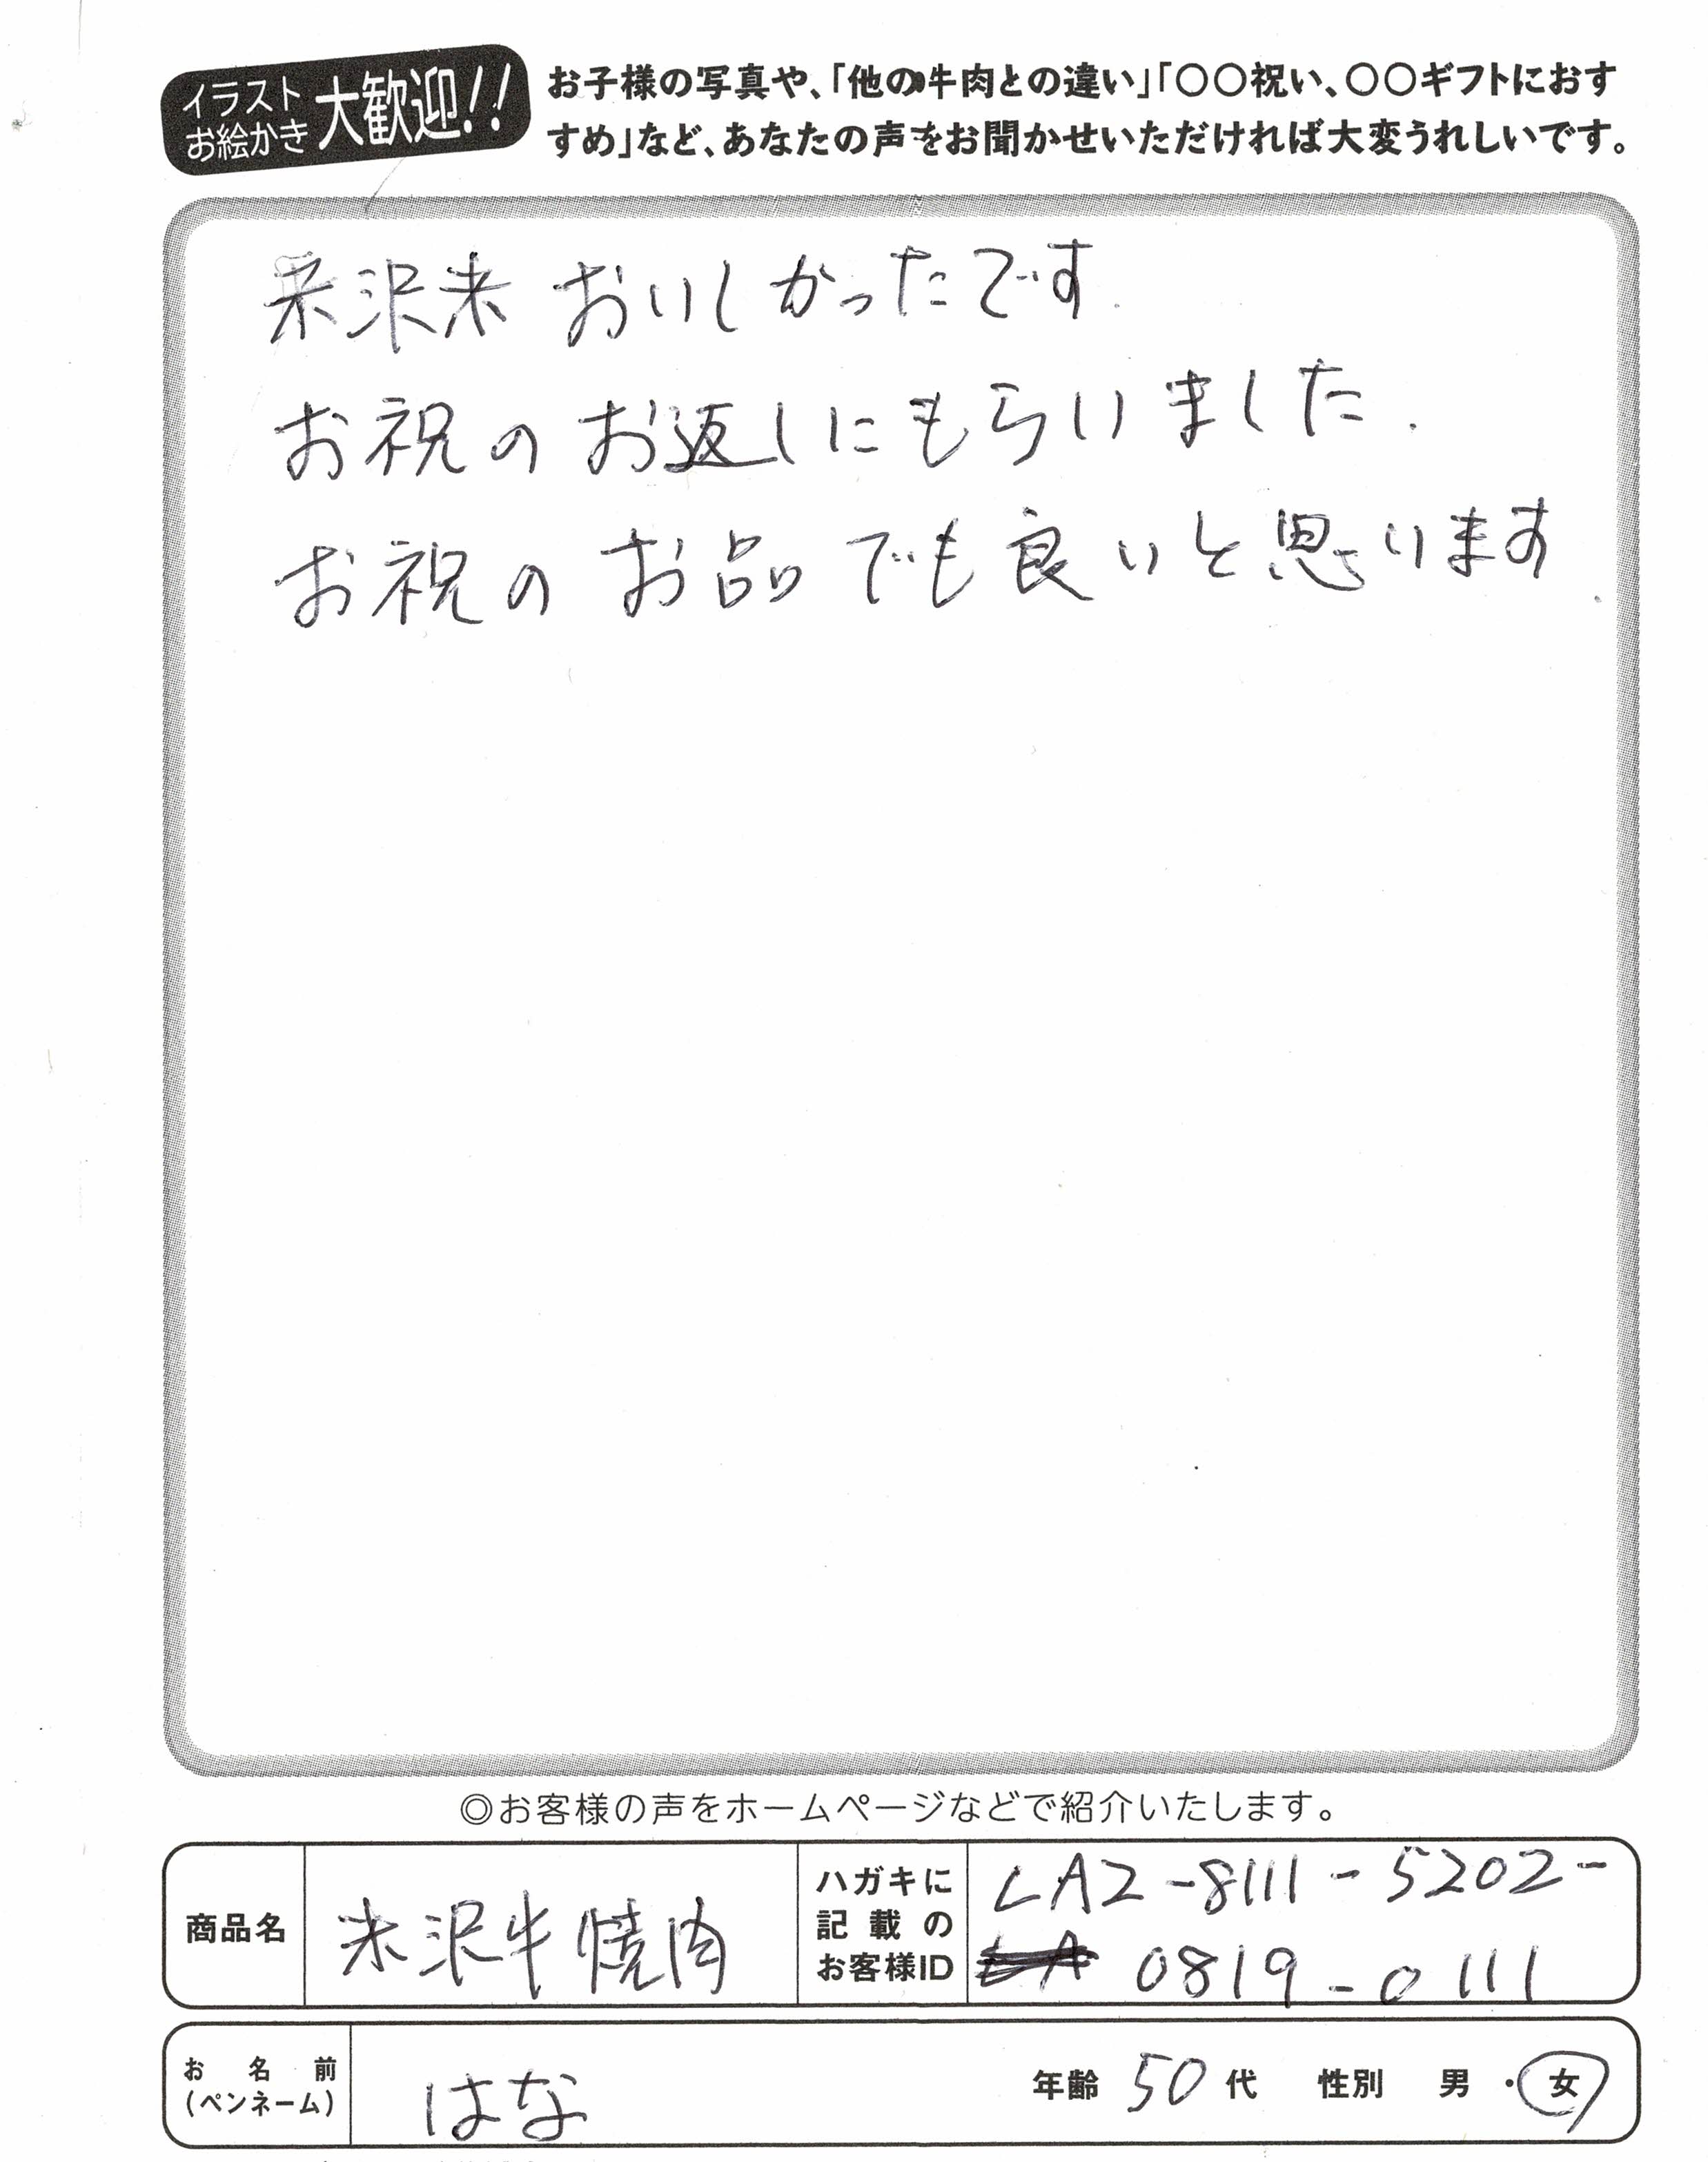 イラスト
お絵かき
大歓迎!!
お子様の写真や、「他の牛肉との違い」「〇〇祝い、〇〇ギフトにおす
すめ」など、あなたの声をお聞かせいただければ大変うれしいです。
米沢来 おいしかったです.
お祝の お返しにもらいました.
お祝の お品 でも良いと思います.
◎お客様の声をホームページなどで紹介いたします。
商品名
米沢牛焼肉
ハガキに
記載の
お客様ID
LA2-8111-5202-
0819-0111
お名前
(ペンネーム)
はな
年齢 50代 性別 男・女